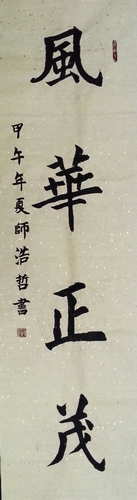 風華正茂
甲午年夏師浩哲書